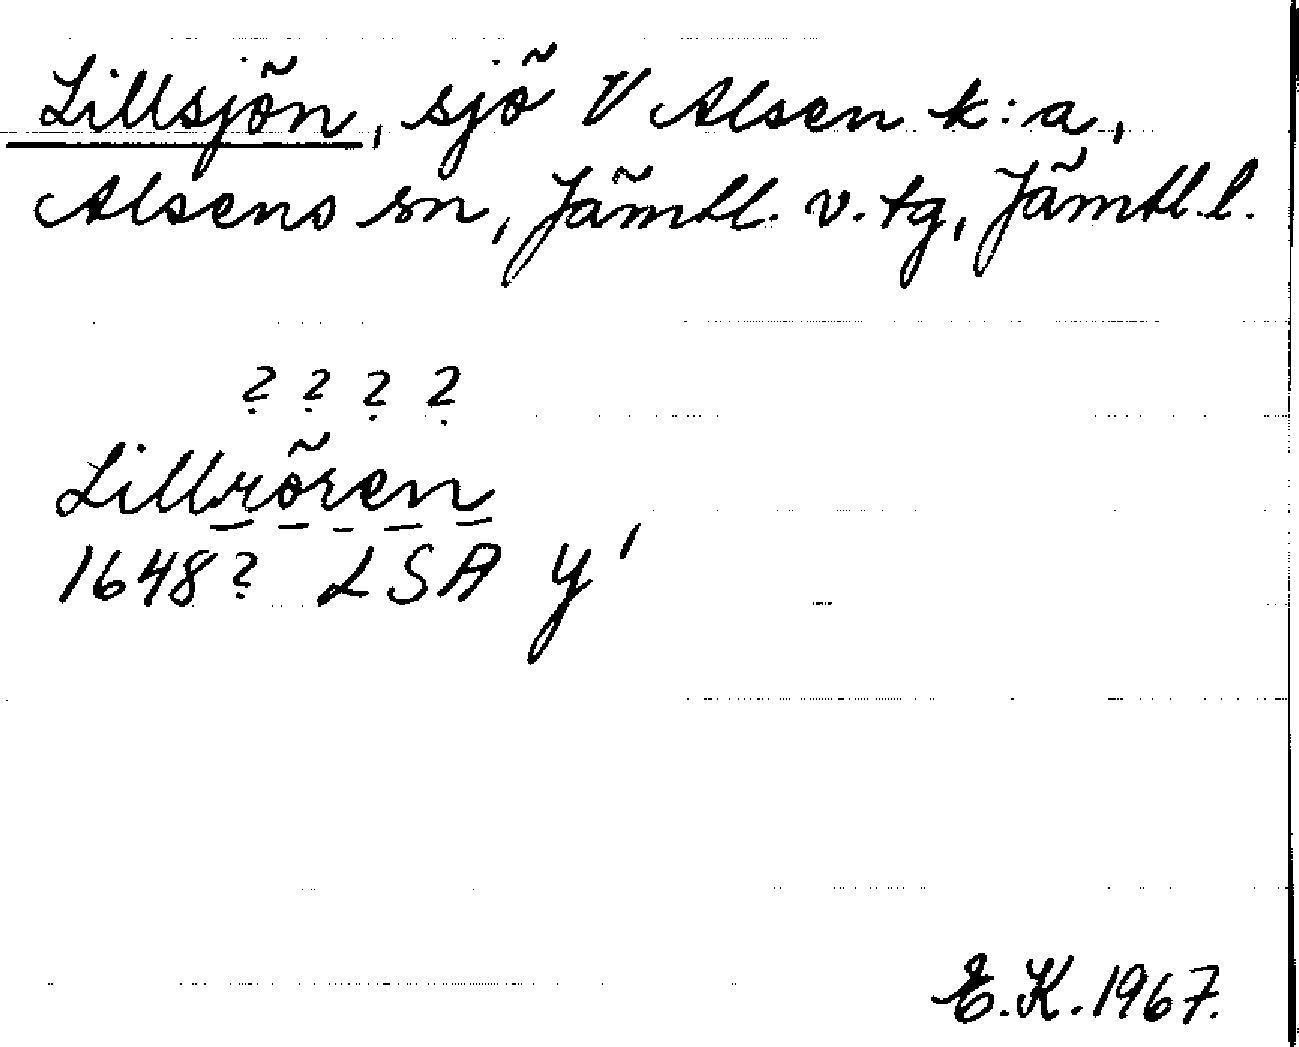 Lillsjön, sjö V Alsen k:a,
Alsens sn, Jämtl. v. tg, Jämtl. l.
? ? ? ?
Lillrören
1648? LSA y'
E.K. 1967.